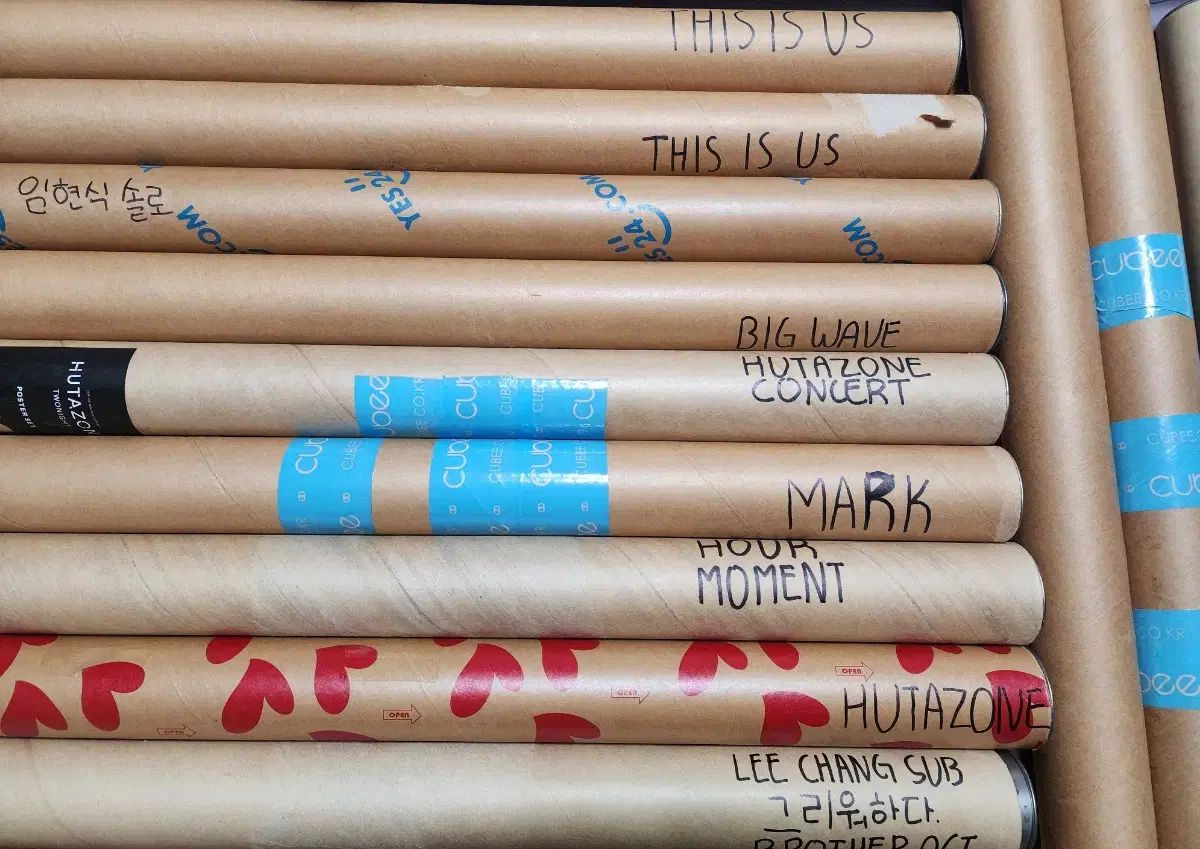 THIS IS US
THIS IS US
임현식 솔로
YES24.COM
YES24.COM
.COM
BIG WAVE
HUTAZONE
CONCERT
HUTAZONE
TWONIGHT
POSTER SET
cubee
CUBEE.CO.KR
MARK
cubee
CUBEE
HOUR
MOMENT
OPEN
OPEN
OPEN
OPEN
HUTAZONE
LEE CHANG SUB
그리워하다.
BROTHER ACT
cubee
CUBEE.CO.KR
CUBEE
cubee
CO.KR
bee